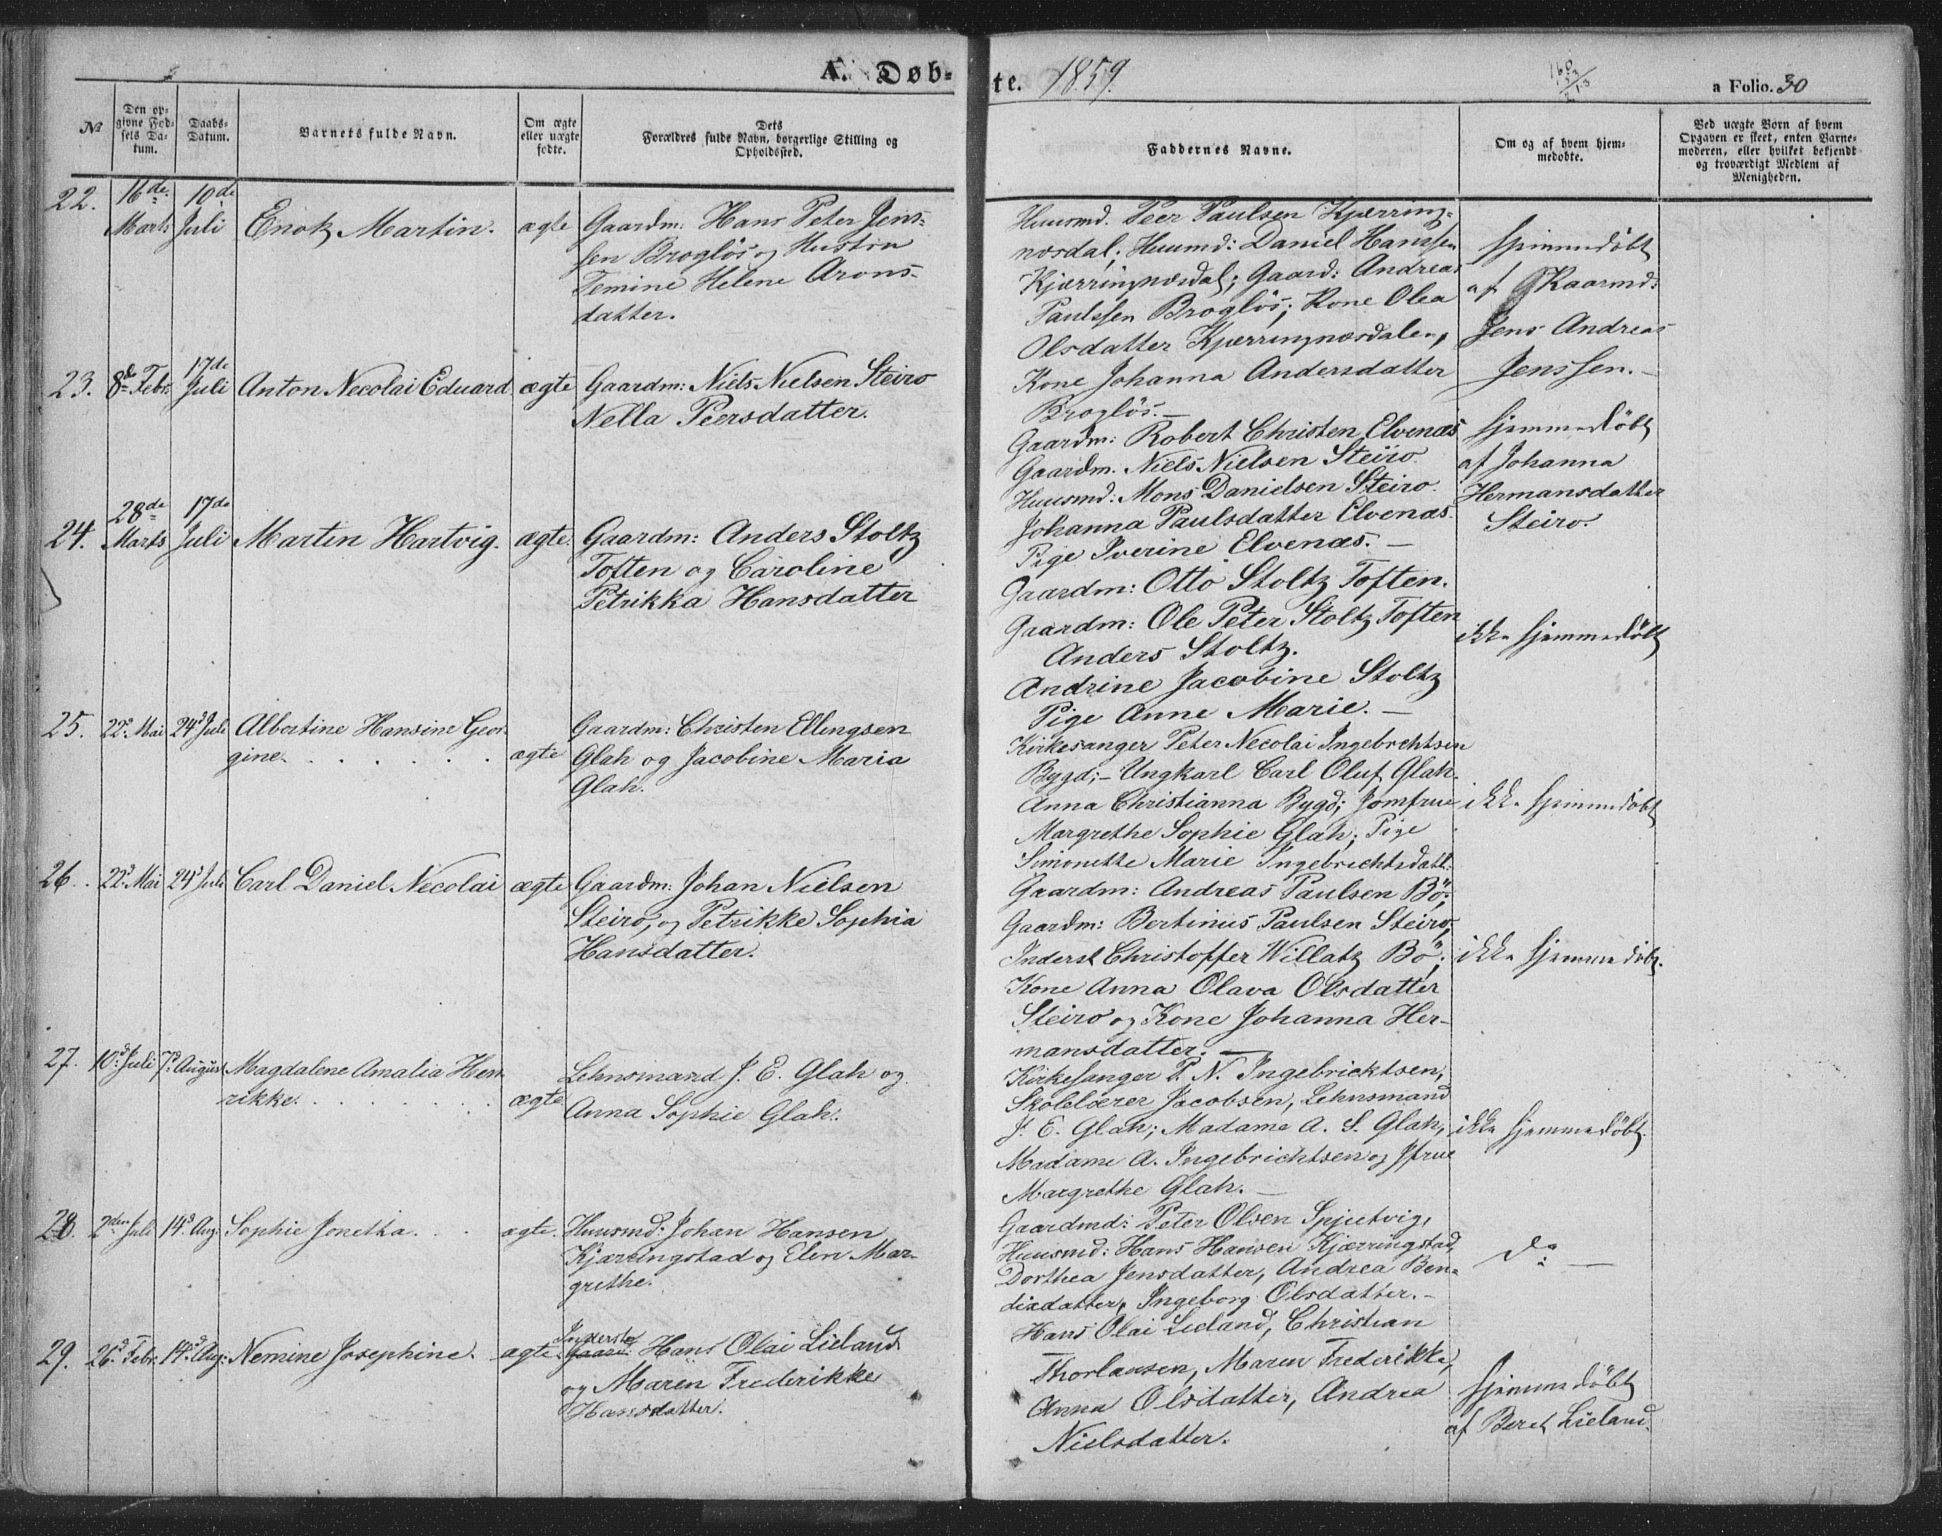 A. Døb-
te. 1859.
a Folio. 30
№
Den op-
givne Fød-
sels Da-
tum.
Daabs-
Datum.
Barnets fulde Navn.
Om ægte
eller uægte
fødte.
Dets
Forældres fulde Navn, borgerlige Stilling og
Opholdssted.
Faddernes Navne.
Om og af hvem hjem-
medøbte.
Ved uægte Børn af hvem
Opgaven er skeet, enten Barne-
moderen, eller hvilket bekjendt
og troværdigt Medlem af
Menigheden.
22. 16de Marts 10de Juli Enok Martin. ægte
Gaardm: Hans Peter Jens-
sen Brogløs og Hustru
Femine Helene Arons-
datter.
Huusmd. Peer Paulsen Kjærring-
næsdal; Huusmd: Daniel Hanssen
Kjærringnæsdal; Gaard: Andreas
Paulssen Brogløs; Kone Olea
Olsdatter Kjærringnæsdalen,
Kone Johanna Andersdatter
Brogløs.
hjemmedøbt
af
Jens Andreas
Jenssen.
23. 8de Febr. 17de Juli Anton Necolai Eduard ægte
Gaardm: Niels Nielsen Steiro
Nella Peersdatter.
Gaardm: Robert Christen Elvenæs
Gaardm. Niels Nielsen Steiro
Huusmd: Mons Danielsen Steiro.
Johanna Paulsdatter Elvenæs
Pige Iverine Elvenæs.
hjemmedøbt
af Johanna
Hermansdatter
Steiro.
24. 28de Marts 17de Juli Martin Hartvig. ægte.
Gaardm: Anders Stoltz
Toften og Caroline
Petrikka Hansdatter
Gaardm: Otto Stoltz Toften.
Gaardm: Ole Peter Stoltz Toften
Anders Stoltz.
Andrine Jacobine Stoltz
Pige Anne Marie.
ikke hjemmedøbt
25. 22d Mai 24d Juli Albertine Hansine Geor-
gine. ægte
Gaardm: Christen Ellingsen
Glah og Jacobine Maria
Glah.
Kirkesanger Peter Necolai Ingebrehtsen
Bygd; Ungkarl Carl Oluf Glah.
Anna Christianna Bygd; Jomfrue
Margrethe Sophie Glah; Pige
Simonette Marie Ingebrichtsdatt.
ikke hjemmedøbt
26. 22d Mai 24d Juli Carl Daniel Necolai ægte
Gaardm: Johan Nielsen
Steiro, og Petrikke Sophia
Hansdatter.
Gaardm: Andreas Paulsen Bö;
Gaardm: Bertinus Paulsen Steiro,
Inderst Christoffer Willatz Bö;
Kone Anna Olava Olsdatter
Steiro og Kone Johanna Her-
mansdatter.
ikke hjemmedøbt.
27. 10d Juli 7d August Magdalene Amalia Hen-
rikke. ægte
Lehnsmand J. E. Glah og
Anna Sophie Glah.
Kirkesanger P. N. Ingebricktsen,
Skolelærer Jacobsen, Lehnsmand
J. E. Glah; Madame A. S. Glah,
Madame A. Ingebrichtsen og Jfrue
Margrethe Glah.
ikke hjemmedøbt.
28. 2den Juli 14d Aug: Sophie Jonetha. ægte.
Huusmd: Johan Hansen
Kjærringstad og Elen Mar-
grethe.
Gaardmd: Peter Olsen Spjutvig,
Huusmd: Hans Hansen Kjærringstad,
Dorthea Jensdatter, Andrea Ben-
dixdatter, Ingeborg Olsdatter.
do
29. 26d Febr. 14d Aug: Nemine Josephine. ægte
Inderst
Gaard Hans Olai Lieland
og Maren Frederikke
Hansdatter.
Hans Olai Lieland, Christian
Thorlausen, Maren Frederikke,
Anna Olsdatter, Andrea
Nielsdatter.
hjemmedøbt
af Beret Lieland.